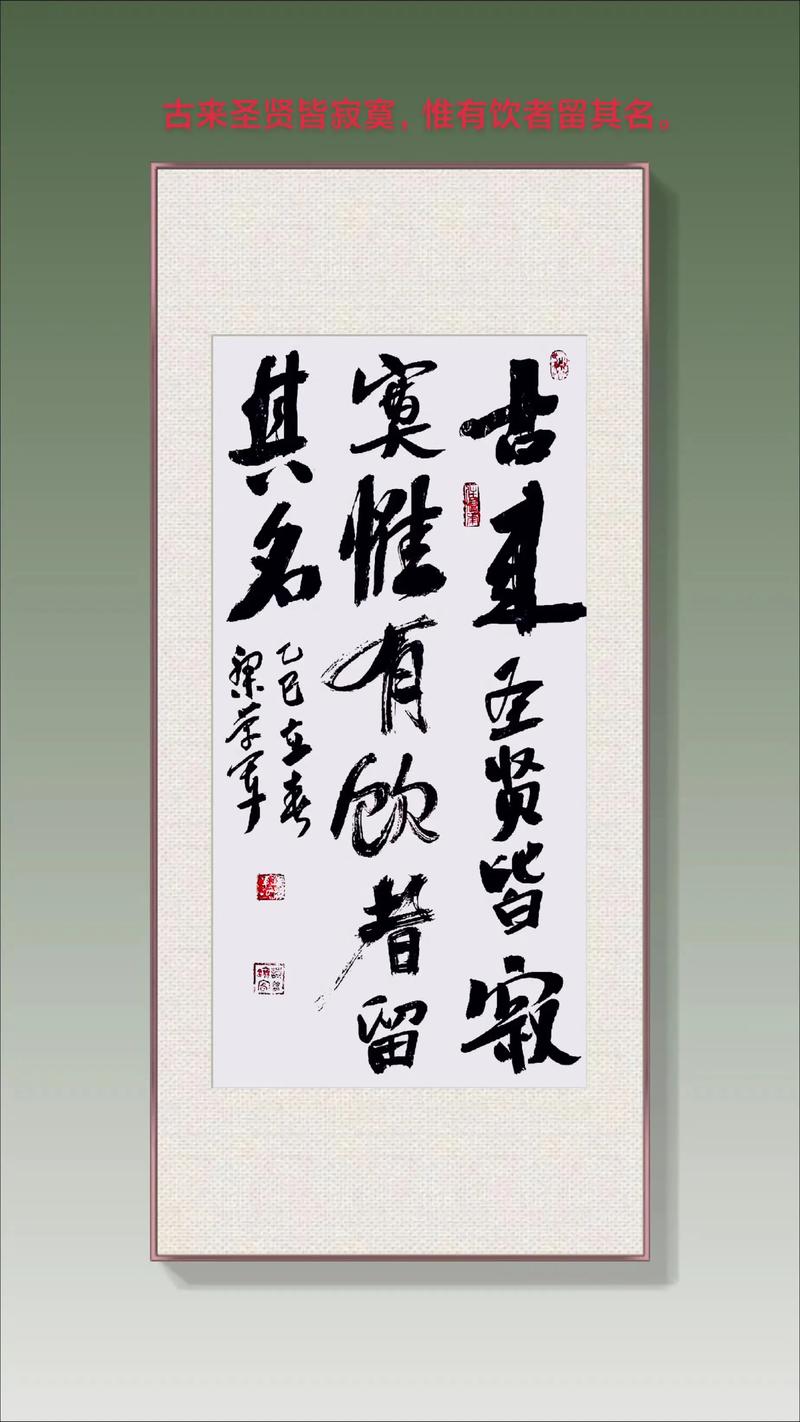 古来圣贤皆寂寞，惟有饮者留其名。
古来圣贤皆寂
寞惟有饮者留
其名
乙巳立春
梁荣军